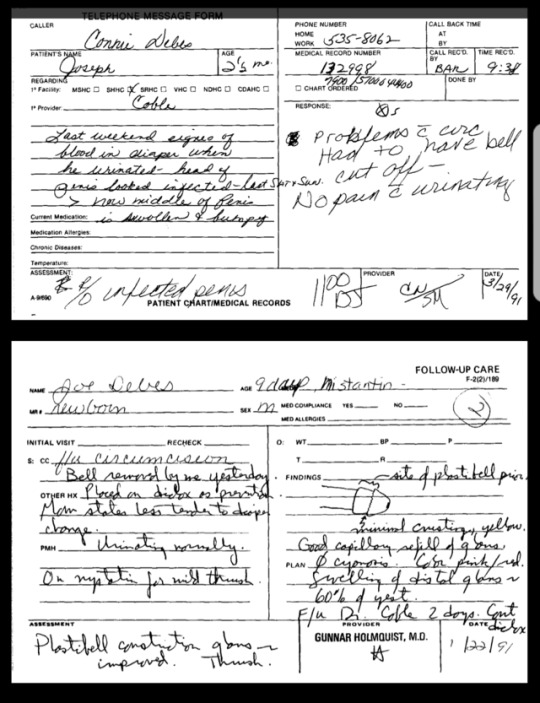 TELEPHONE MESSAGE FORM
CALLER
Connie Debes
PATIENT'S NAME
Joseph
AGE
2½ mo.
REGARDING
1° Facility: MSHC SHHC SRHC VHC NDHC CDAHC
1° Provider Coble
Last weekend signes of
blood in diaper when
he urinated - head of
penis looked infected - last Sat & Sun.
> now middle of Penis
Current Medication: is swollen & bumpy
Medication Allergies:
Chronic Diseases:
Temperature:
ASSESSMENT:
R/O infected penis
A-9/690
PATIENT CHART/MEDICAL RECORDS
PHONE NUMBER
HOME
WORK 535-8062
CALL BACK TIME
AT
BY
MEDICAL RECORD NUMBER
132998
CALL REC'D. BY
BAR
TIME REC'D.
9:38
CHART ORDERED
DONE BY
RESPONSE:
Problems c̄ circ
Had to have bell
cut off -
No pain c̄ urinating
1100
PROVIDER
DATE
3/29/91
FOLLOW-UP CARE
F-2(2)/189
NAME Joe Debes
AGE 9 days
MR # Newborn
SEX M
MED COMPLIANCE YES NO
MED ALLERGIES
2
INITIAL VISIT RECHECK
S: CC f/u circumcision
Bell removed by me yesterday.
OTHER HX Placed on diclox as
Mom states less tender to diaper
change.
PMH Urinating normally.
On nystatin for mild thrush.
ASSESSMENT
Plastibell constriction glans -
improved. Thrush.
O: WT. BP P
T R
FINDINGS site of plastibell prior
minimal crusting, yellow.
Good capillary refill of glans.
PLAN Ø cyanosis. Color pink/red.
Swelling of distal glans ~
60% of yest.
F/u Dr. Coble 2 days. Cont
diclox
PROVIDER
GUNNAR HOLMQUIST, M.D.
DATE
1/22/91